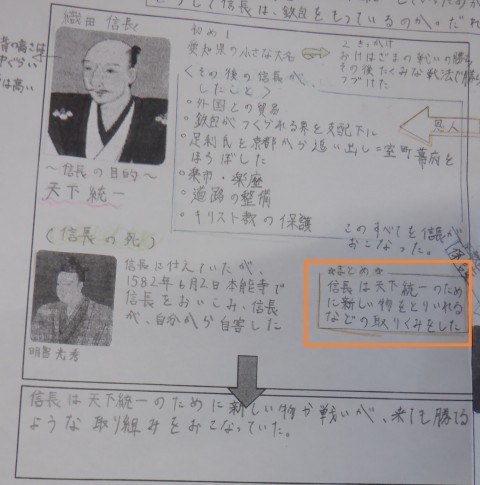 織田 信長
初め1
愛知県の小さな大名
〈その後の信長が、
したこと〉
外国との貿易
鉄包がつくられる界を支配下に
足利氏を京都から追い出し=室町幕府を
ほろぼした
楽市・楽座
道路の整備
キリスト教の保護
恩人
～信長の目的～
天下統一
このすべてを信長が
おこなった。
(信長の死)
信長に仕えていたが、
1582年6月2日本能寺で
信長をおいこみ、信長
が、自分から自害した
明智光秀
☆まとめ☆
信長は天下統一のため
に新しい物をとりいれる
などの取りくみをした
信長は天下統一のために新しい物か戦いが、来ても勝てる
ような取り組みをおこなっていた。